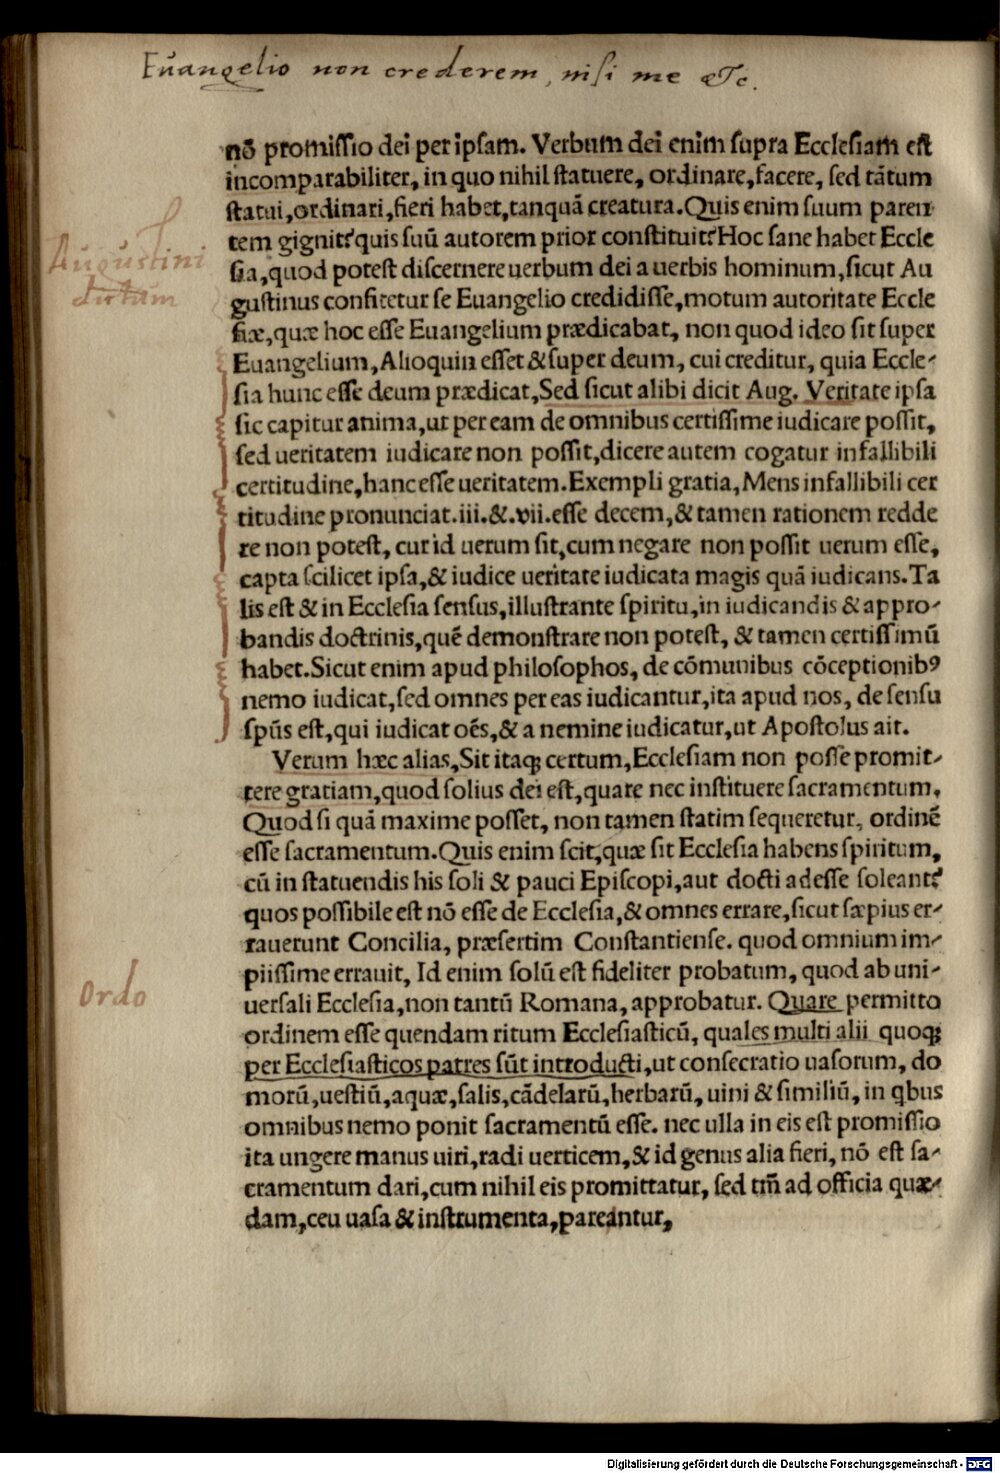 Euangelio non crederem, nisi me &c.
nō promissio dei per ipsam. Verbum dei enim supra Ecclesiam est
incomparabiliter, in quo nihil statuere, ordinare, facere, sed tātum
statui, ordinari, fieri habet, tanquā creatura. Quis enim suum paren
tem gignit? quis suū autorem prior constituit? Hoc sane habet Eccle
sia, quod potest discernere uerbum dei a uerbis hominum, sicut Au
Augustini
dictum
gustinus confitetur se Euangelio credidisse, motum autoritate Eccle
siæ, quæ hoc esse Euangelium prædicabat, non quod ideo sit super
Euangelium, Alioquin esset & super deum, cui creditur, quia Eccle-
sia hunc esse deum prædicat, Sed sicut alibi dicit Aug. Veritate ipsa
sic capitur anima, ut per eam de omnibus certissime iudicare possit,
sed ueritatem iudicare non possit, dicere autem cogatur infallibili
certitudine, hanc esse ueritatem. Exempli gratia, Mens infallibili cer
titudine pronunciat .iii. &. vii. esse decem, & tamen rationem redde
re non potest, cur id uerum sit, cum negare non possit uerum esse,
capta scilicet ipsa, & iudice ueritate iudicata magis quā iudicans. Ta
lis est & in Ecclesia sensus, illustrante spiritu, in iudicandis & appro-
bandis doctrinis, quē demonstrare non potest, & tamen certissimū
habet. Sicut enim apud philosophos, de cōmunibus cōceptionibꝰ
nemo iudicat, sed omnes per eas iudicantur, ita apud nos, de sensu
spūs est, qui iudicat oēs, & a nemine iudicatur, ut Apostolus ait.
Verum hæc alias, Sit itaqꝫ certum, Ecclesiam non posse promit-
tere gratiam, quod solius dei est, quare nec instituere sacramentum.
Quod si quā maxime posset, non tamen statim sequeretur, ordinē
esse sacramentum. Quis enim scit, quæ sit Ecclesia habens spiritum,
cū in statuendis his soli & pauci Episcopi, aut docti adesse soleant?
quos possibile est nō esse de Ecclesia, & omnes errare, sicut sæpius er-
rauerunt Concilia, præsertim Constantiense. quod omnium im-
piissime errauit, Id enim solū est fideliter probatum, quod ab uni-
Ordo
uersali Ecclesia, non tantū Romana, approbatur. Quare permitto
ordinem esse quendam ritum Ecclesiasticū, quales multi alii quoqꝫ
per Ecclesiasticos patres sūt introducti, ut consecratio uasorum, do
morū, uestiū, aquæ, salis, cādelarū, herbarū, uini & similiū, in qbus
omnibus nemo ponit sacramentū esse. nec ulla in eis est promissio
ita ungere manus uiri, radi uerticem, & id genus alia fieri, nō est sa-
cramentum dari, cum nihil eis promittatur, sed tm̄ ad officia quæ-
dam, ceu uasa & instrumenta, pareantur,
Digitalisierung gefördert durch die Deutsche Forschungsgemeinschaft - DFG